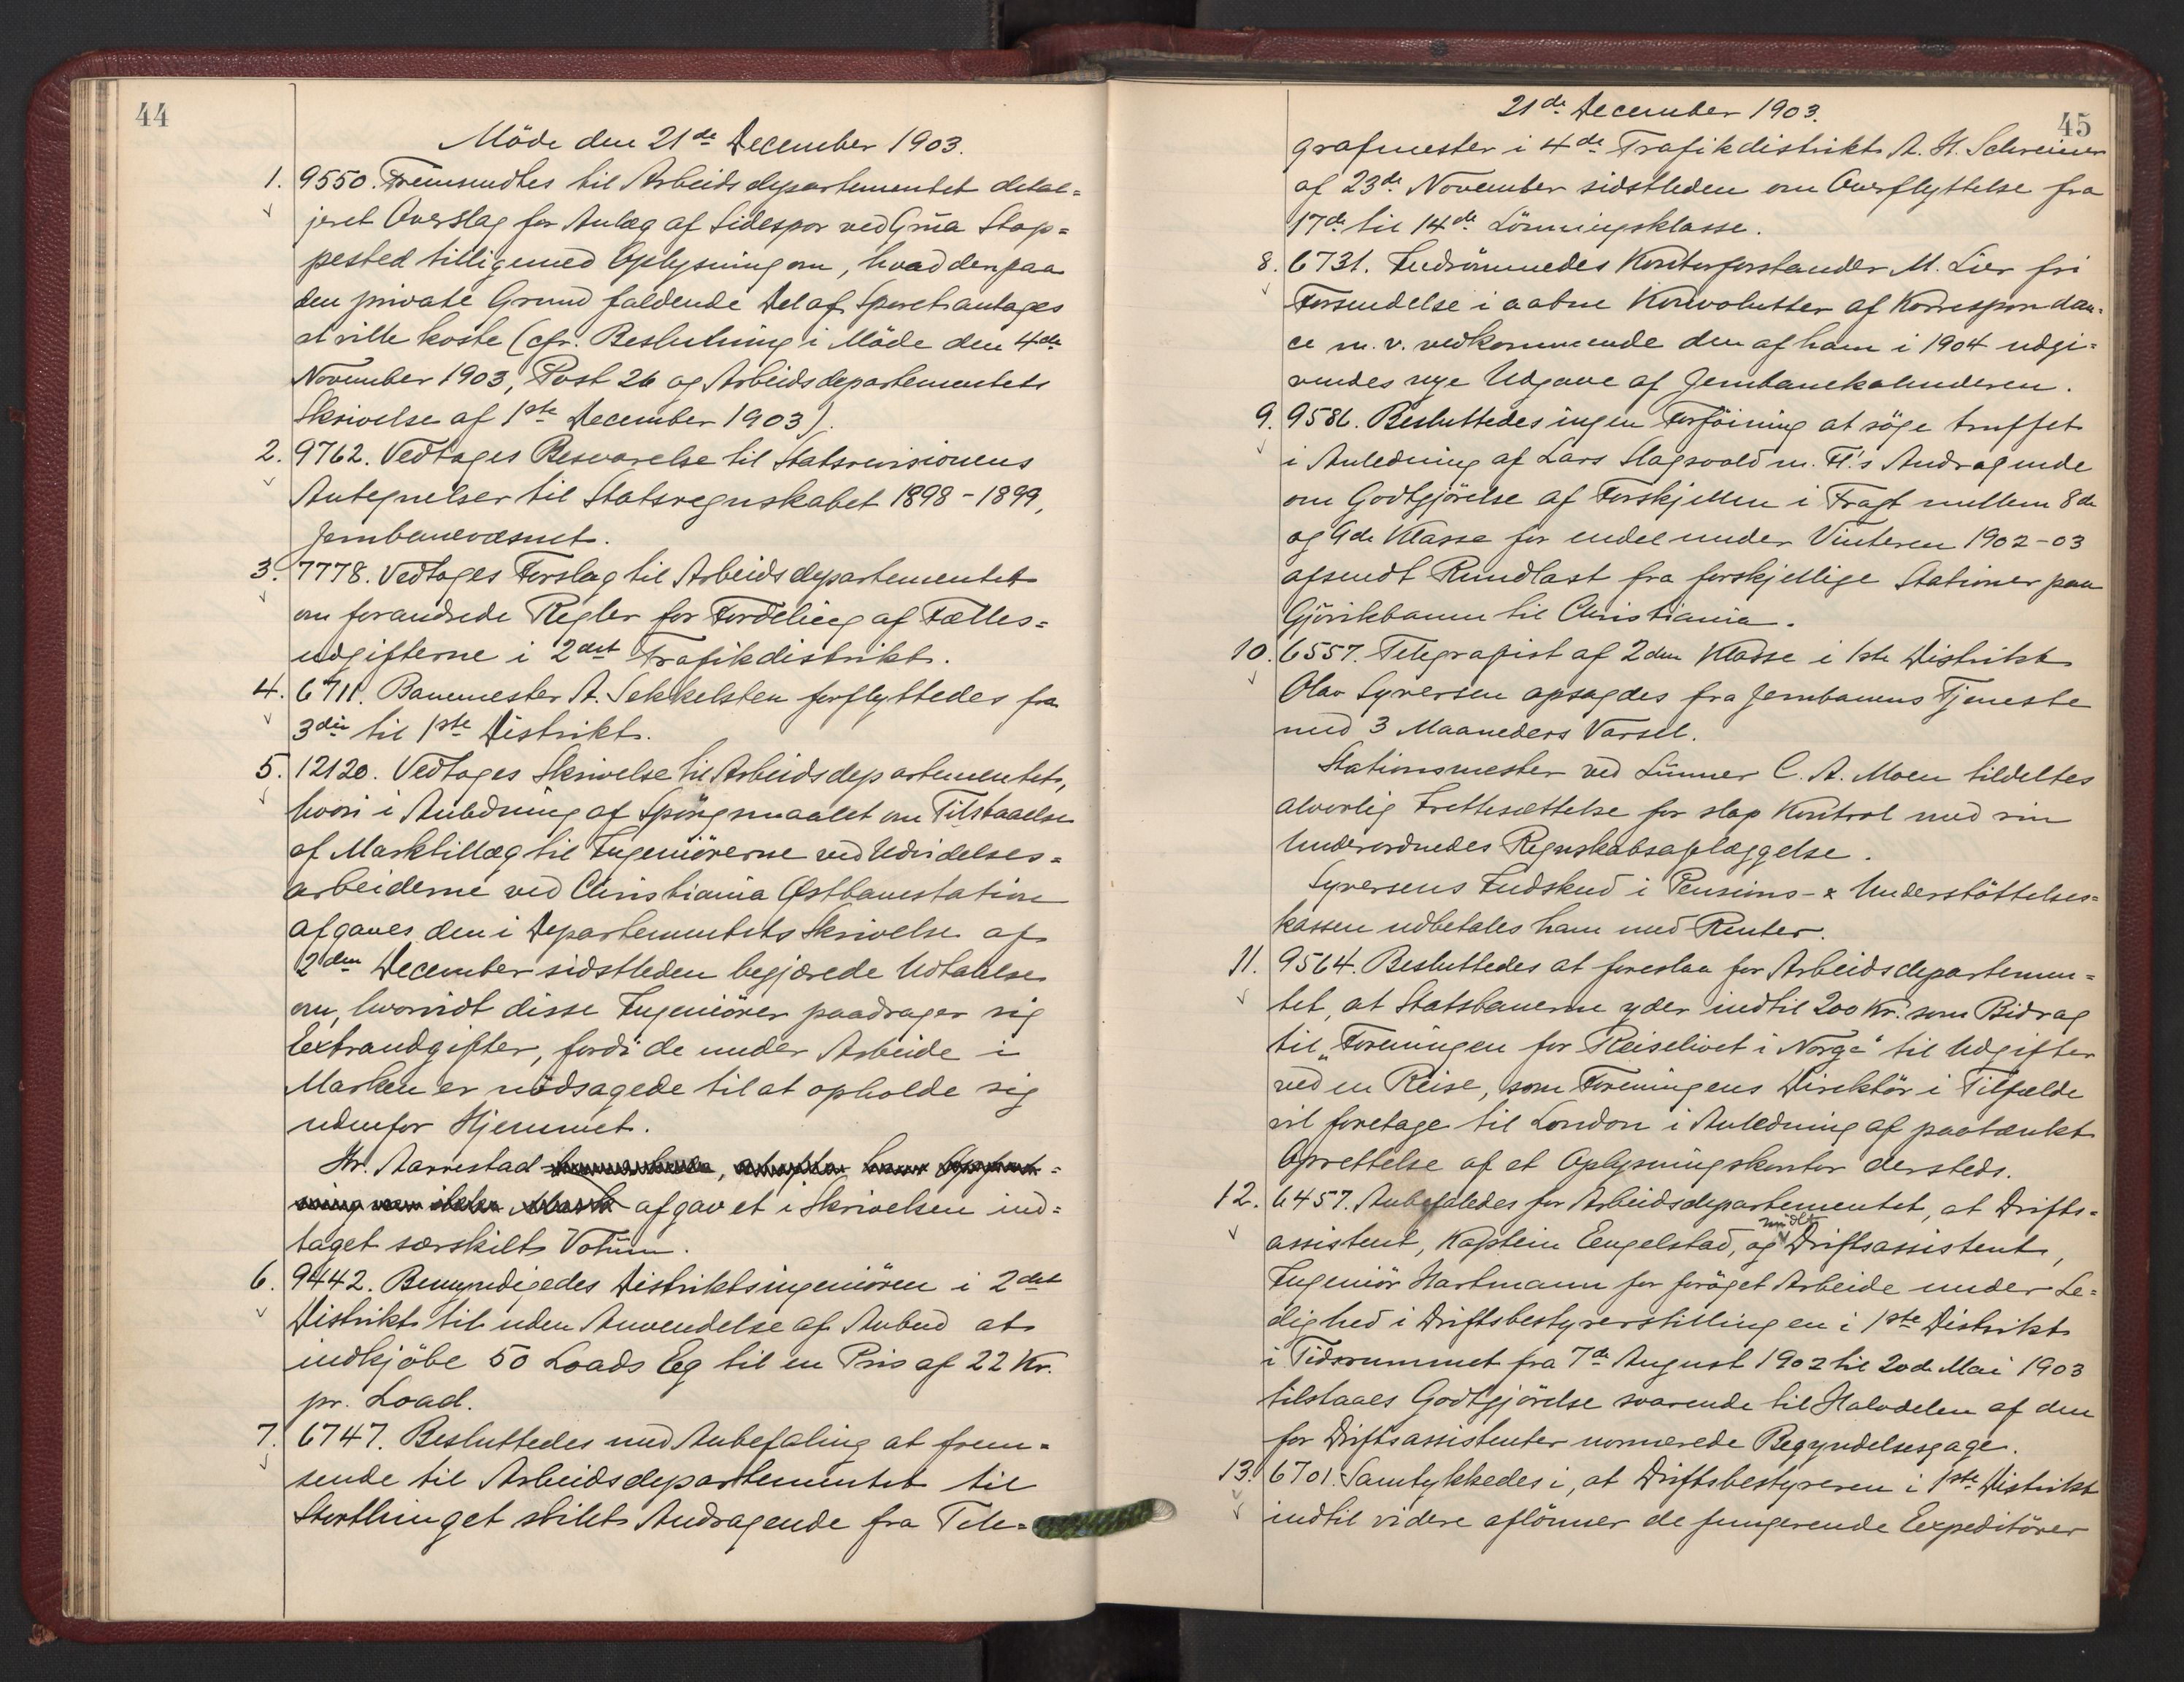 44
Möde den 21de December 1903.
1. 9550. Fremsendtes til Arbeidsdepartementet detal=
jeret Overslag for Anlæg af Sidespor ved Grua Stop=
pested tilligemed Oplysning om, hvad den paa
den private Grund faldende Del af Sporet antages
at ville koste (cfr. Beslutning i Möde den 4de
November 1903, Post 26 og Arbeidsdepartementets
Skrivelse af 1ste December 1903).
2. 9762. Vedtages Besvarelse til Statsrevisionens
Antegnelser til Statsregnskabet 1898-1899,
Jernbanevæsnet.
3. 7778. Vedtages Forslag til Arbeidsdepartementet
om forandrede Regler for Fordeling af Fælles=
udgifterne i 2det Trafikdistrikt.
4. 6711. Banemester A. Sekkelsten forflyttedes fra
3die til 1ste Distrikt.
5. 12120. Vedtages Skrivelse til Arbeidsdepartementet,
hvori i Anledning af Spörgsmaalet om Tilstaaelse
af Marktillæg til Ingeniörerne ved Udvidelses=
arbeiderne ved Christiania Østbanestation
afgaves den i Departementets Skrivelse af
2den December sidstleden begjærede Udtalelse
om, hvorvidt disse Ingeniörer paadrager sig
Extraudgifter, fordi de under Arbeide i
Marken er nödsagede til at opholde sig
udenfor Hjemmet.
Hr. Aarrestad
afgav et i Skrivelsen ind=
taget særskilt Votum.
6. 9442. Bemyndigedes Distriktsingeniören i 2det
Distrikt til uden Anvendelse af Anbud at
indkjöbe 50 Loads Eg til en Pris af 22 Kr.
pr. Load.
7. 6747. Besluttedes med Anbefaling at frem=
sende til Arbeidsdepartementet til
Storthinget stilet Andragende fra Tele=
45
21de December 1903.
grafmester i 4de Trafikdistrikt A. H. Schreiner
af 23de November sidstleden om Overflyttelse fra
17de til 14de Lönningsklasse.
8. 6731. Indrömmedes Kontorforstander M. Lier fri
Forsendelse i aabne Konvolutter af Korrespondan=
ce m. v. vedkommende den af ham i 1904 udgi=
vendes nye Udgave af Jernbanekalenderen.
9. 9586. Besluttedes ingen Forföining at söge truffet
i Anledning af Lars Slagsvold m. Fl.'s Andragende
om Godtgjörelse af Forskjellen i Fragt mellem 8de
og 9de Klasse for endel under Vinteren 1902-03
afsendt Rundlast fra forskjellige Stationer paa
Gjövikbanen til Christiania.
10. 6557. Telegrafist af 2den Klasse i 1ste Distrikt
Olav Syversen opsagdes fra Jernbanens Tjeneste
med 3 Maaneders Varsel.
Stationsmester ved Lunner C. A. Moen tildeltes
alvorlig Irettesættelse for slap Kontrol med sin
Underordnedes Regnskabsaflæggelse.
Syversens Indskud i Pensions- & Understöttelses=
kassen udbetales ham med Renter.
11. 9564. Besluttedes at foreslaa for Arbeidsdepartemen=
tet, at Statsbanerne yder indtil 200 Kr. som Bidrag
til „Foreningen for Reiselivet i Norge" til Udgifter
ved en Reise, som Foreningens Direktör i Tilfælde
vil foretage til London i Anledning af paatænkt
Oprettelse af et Oplysningskontor dersteds.
12. 6457. Anbefaledes for Arbeidsdepartementet, at Drifts=
assistent, Kaptein Eengelstad, og midlt. Driftsassistent,
Ingeniör Hartmann for foröget Arbeide under Le=
dighed i Driftsbestyrerstillingen i 1ste Distrikt
i Tidsrummet fra 7de August 1902 til 20de Mai 1903
tilstaaes Godtgjörelse svarende til Halvdelen af den
for Driftsassistenter normerede Begyndelsesgage.
13. 6701. Samtykkedes i, at Driftsbestyreren i 1ste Distrikt
indtil videre aflönner de fungerende Expeditörer